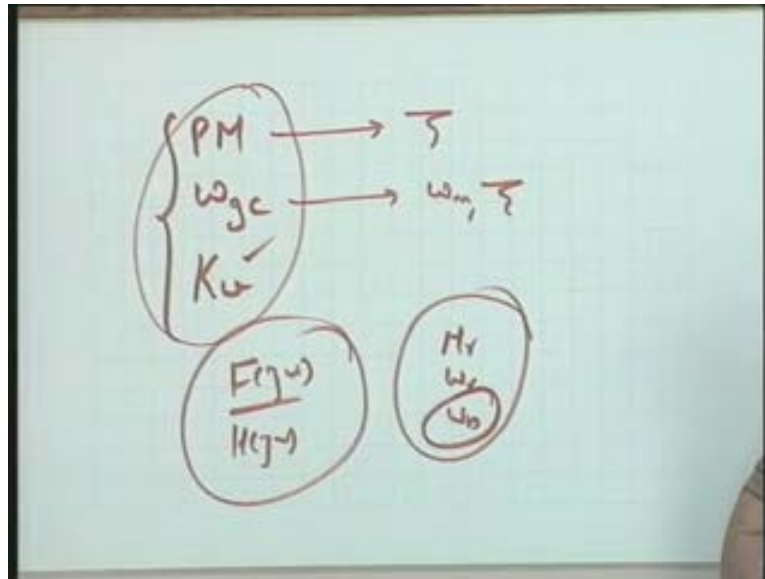 PM → ζ
ωgc → ωn, ζ
Kv ✓
F(jω)
H(jω)
Mr
ωr
ωb